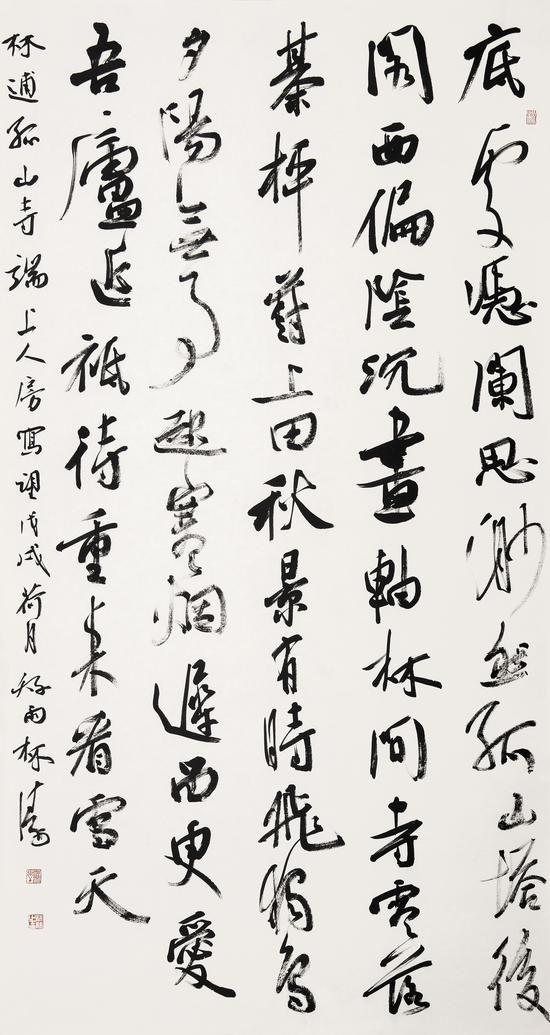 底處憑闌思眇然孤山塔後
閣西偏陰沉畫軸林間寺零落
棊枰葑上田秋景有時飛獨鳥
夕陽無事起寒烟遲留更愛
吾廬近秪待重来看雪天
林逋孤山寺端上人房寫望戊戌荷月 雨林濤